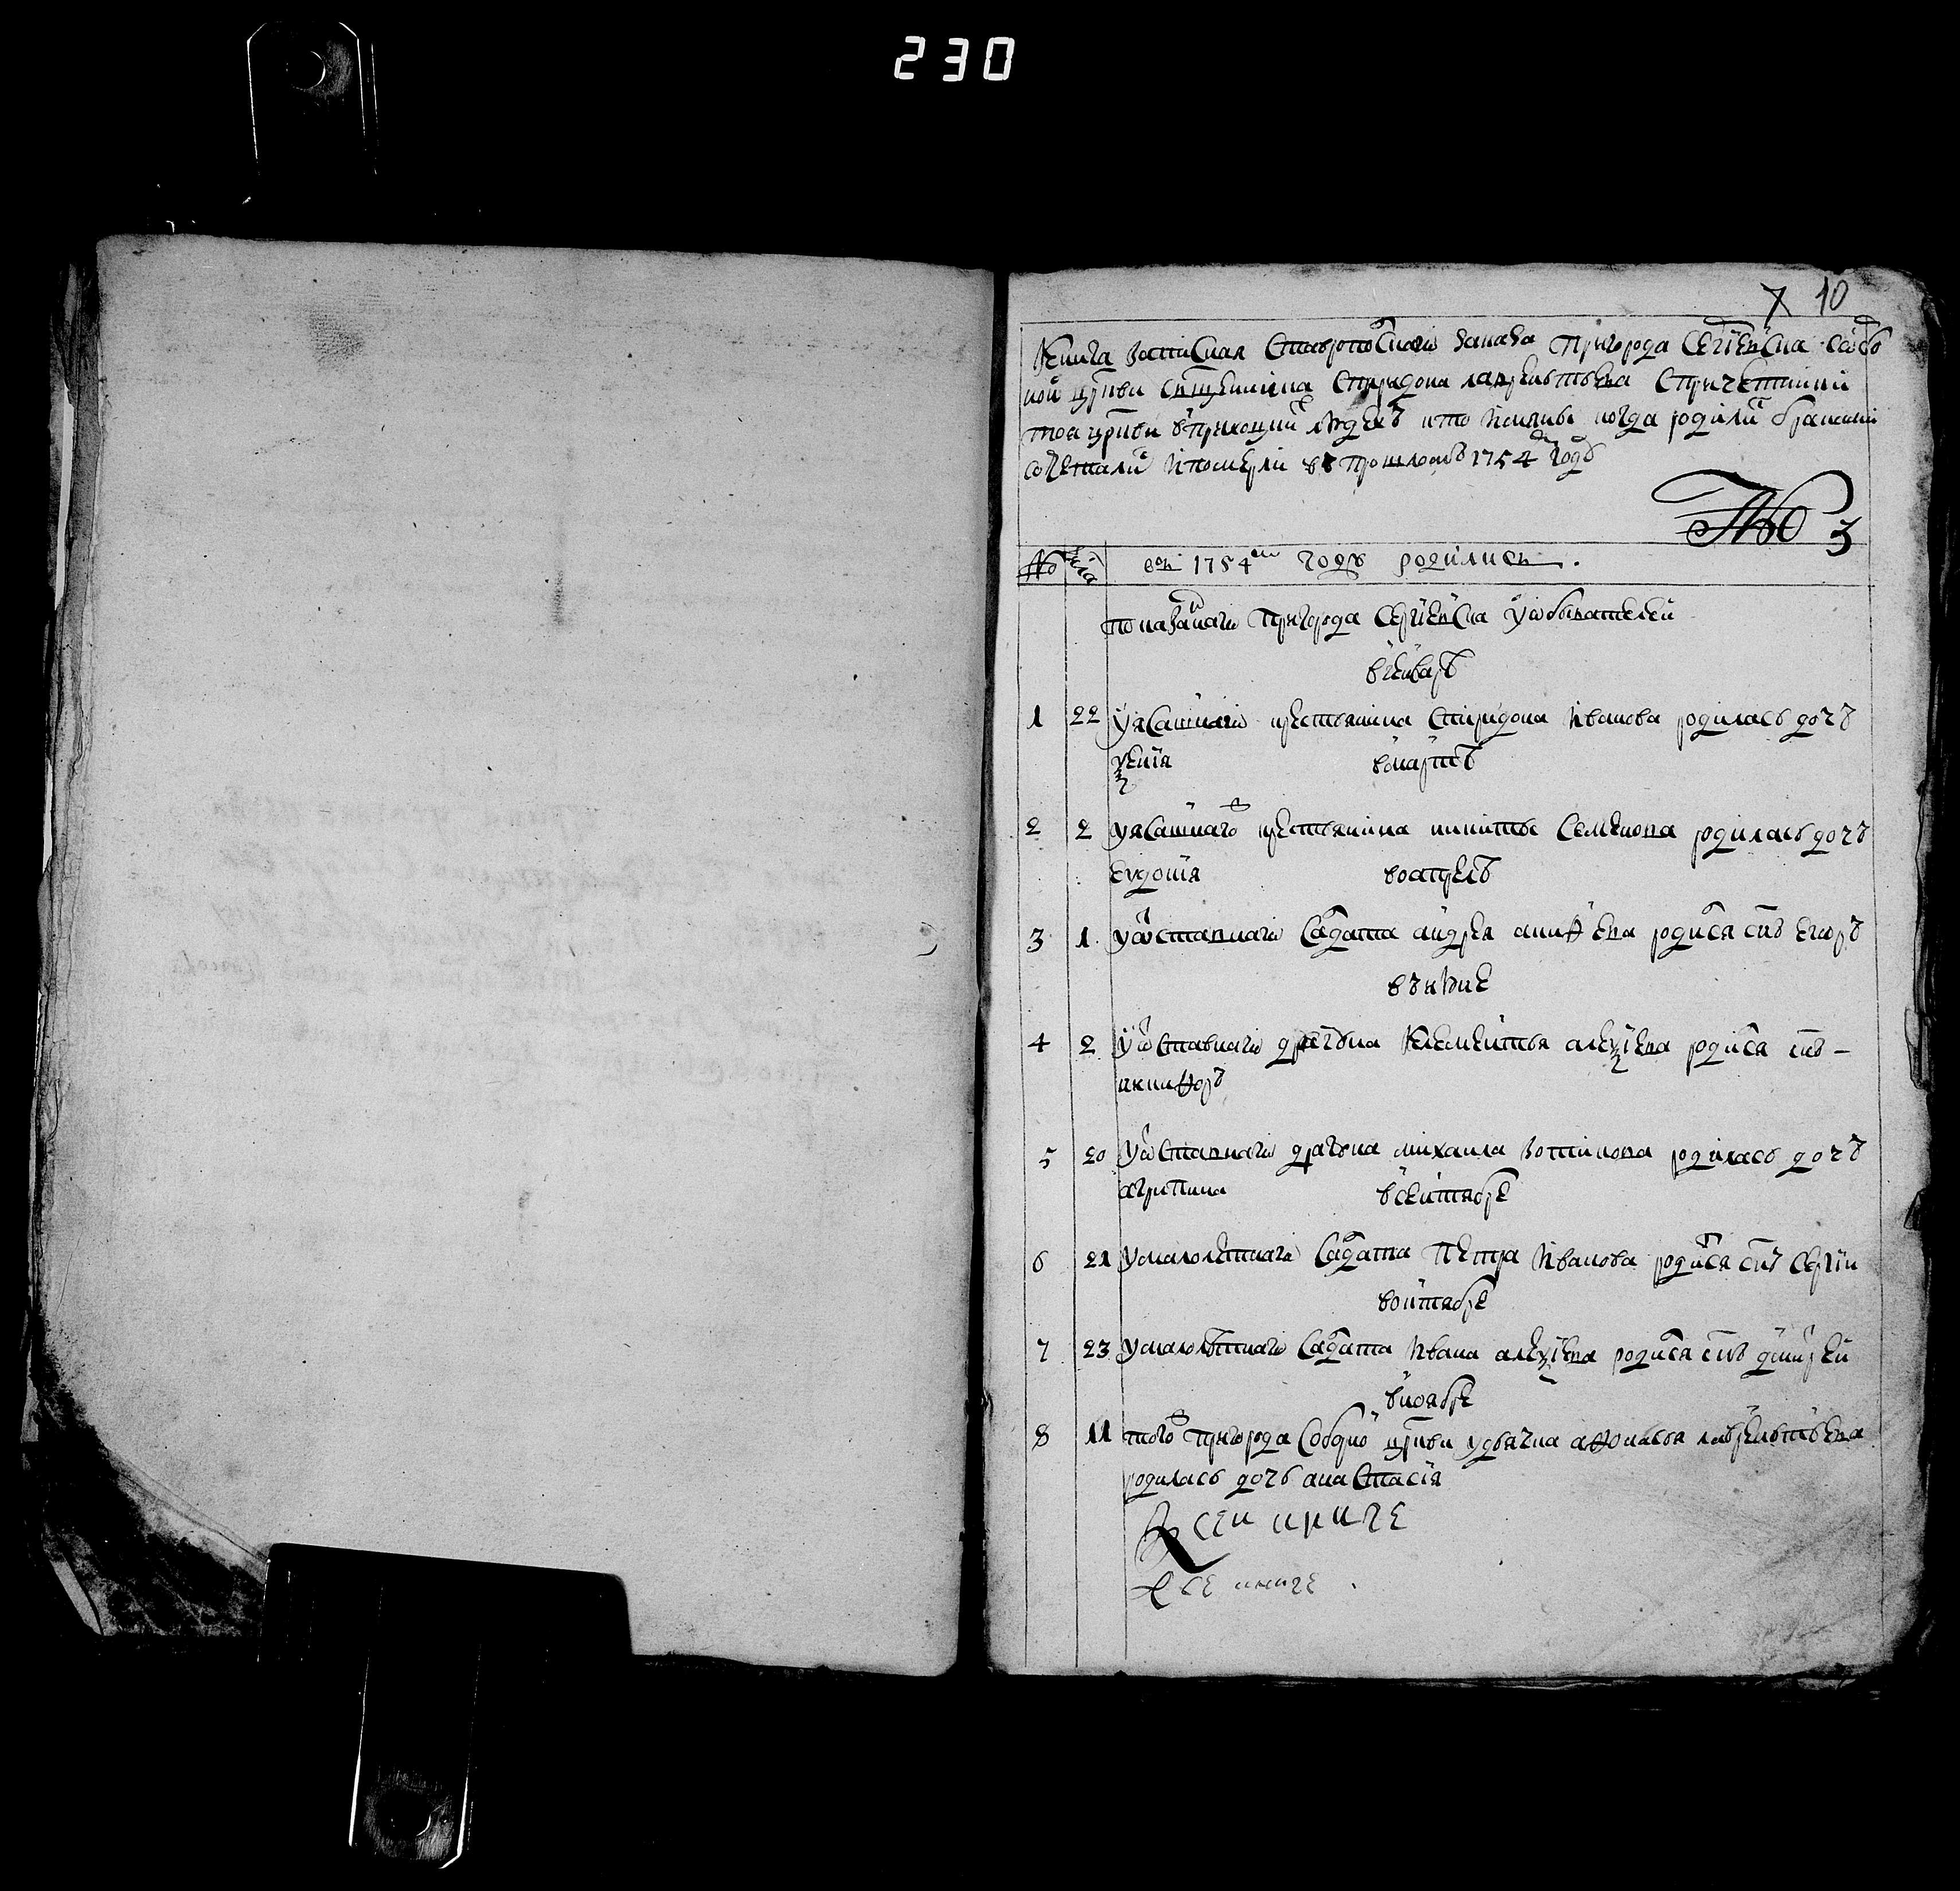 230
7 10
Книга записная Ставропоскаго заказа пригорода Сергиевска собор
ной церкви священника Спиридона Лаврентьева с причетники
тоя церкви в приходцких людех кто имяны когда родились браками
сочетались и померли в прошлом 1754 году
№ 3
№ числа в 1754м году родились.
показанаго пригорода Сергиевска у обывателей
в генваре
1 22 у ясашнаго крестьянина Спиридона Иванова родилась дочь
Ксения в марте
2 2 у ясашнаго крестьянина Никиты Семенова родилась дочь
Евдокия во апреле
3 1 у отставнаго салдата Андрея Аникиева родился сын Егоръ
в июне
4 2 у отставнаго драгуна Клементья Алексиева родился сын –
Никифоръ
5 20 у отставнаго драгуна Михаила Зотикова родилась дочь
Агрипина в сентябре
6 21 у малолетнаго салдата Петра Иванова родился сын Сергии
в октябре
7 23 у малолетнаго салдата Ивана Алексиева родился сын Дмитрей
в ноябре
8 11 того пригорода соборной церкви у дьячка Афонасья Лаврентьева
родилась дочь Анастасия
К сеи книге
К се книге